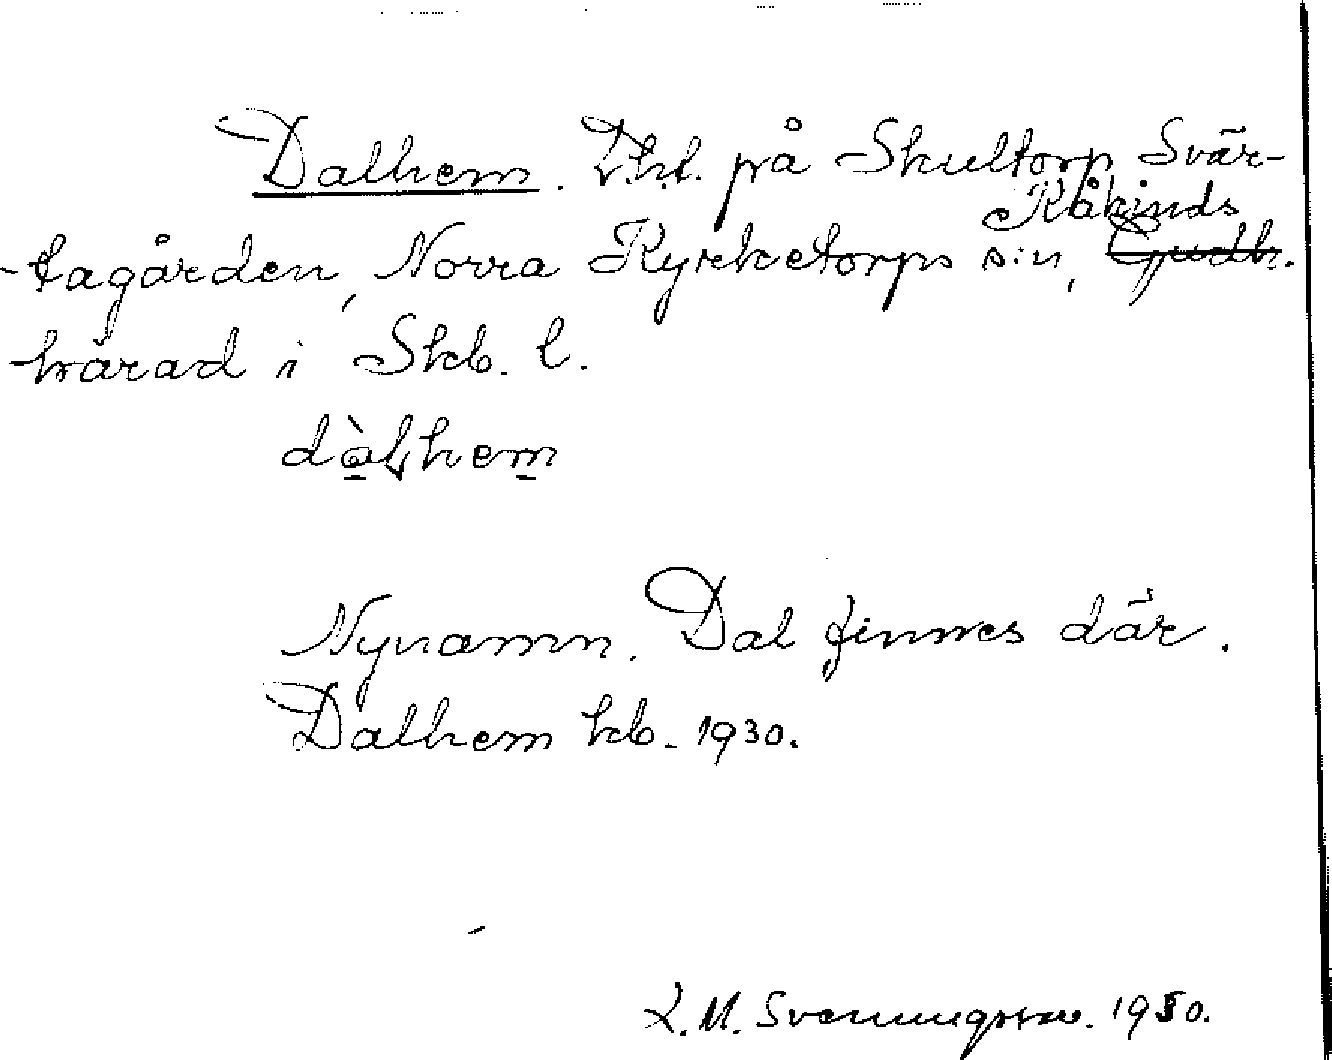 Dalhem. Lht. på Skultorp Svär-
Kåkinds
tagården, Norra Kyrketorps s:n, Gudh.
härad i Skb. l.
dàlhem
Nynamn. Dal finnes där.
Dalhem kb. 1930.
L. M. Svenungsson. 1950.